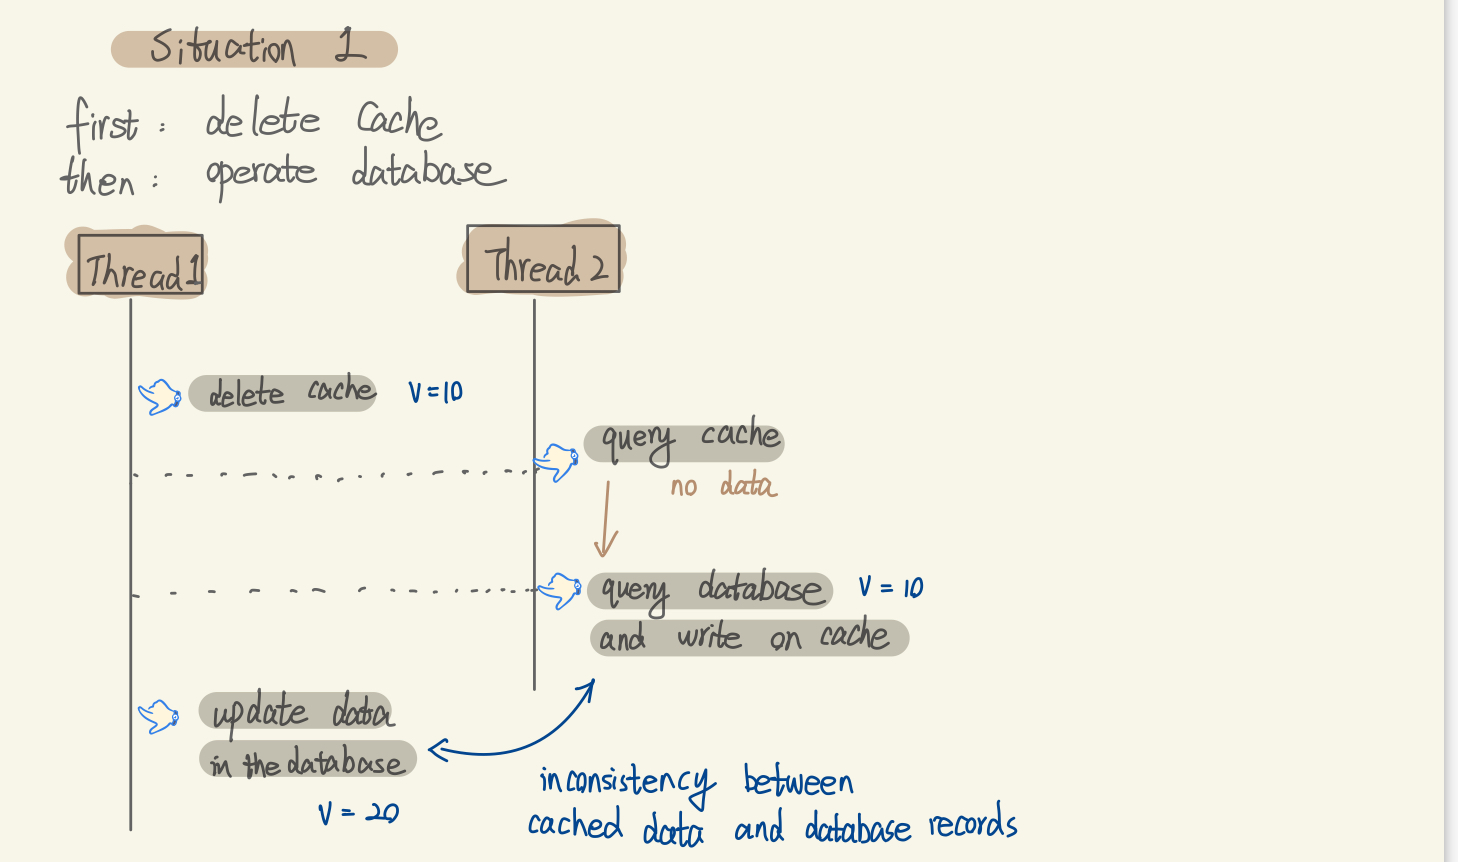 Situation 1
first : delete Cache
then : operate database
Thread1
Thread 2
delete cache
V=10
query cache
no data
query database
V = 10
and write on cache
update data
in the database
V = 20
inconsistency between
cached data and database records